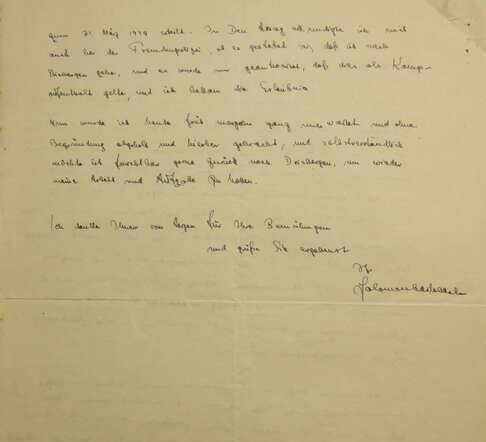 zum 31 März 1939 erteilt. In Den Haag erkundigte ich mich
auch bei der Fremdenpolizei, ob es gestattet sei, daß ich nach
gehe, und es wurde mir geantwortet, daß dies als Kamp-
aufenthalt gelte, und ich bekam die Erlaubnis
Nun wurde ich heute früh morgens ganz unerwartet und ohne
Begründung abgeholt und hierher gebracht, und selbstverständlich
möchte ich furchtbar gerne zurück nach, um wieder
meine Arbeit und Aufgabe zu haben.
Ich danke Ihnen von Herzen für Ihre Bemühungen
und grüße Sie ergebenst
Ihr
Salomon